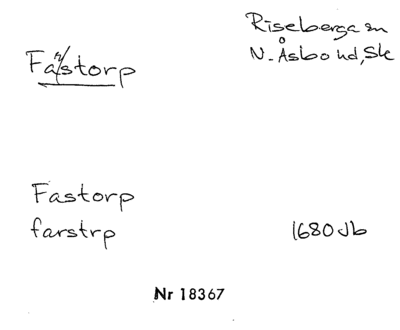 Riseberga sn
Fa r/storp
N. Åsbo hd, Sk
Fastorp
farstrp 1680 Jb
Nr 18367